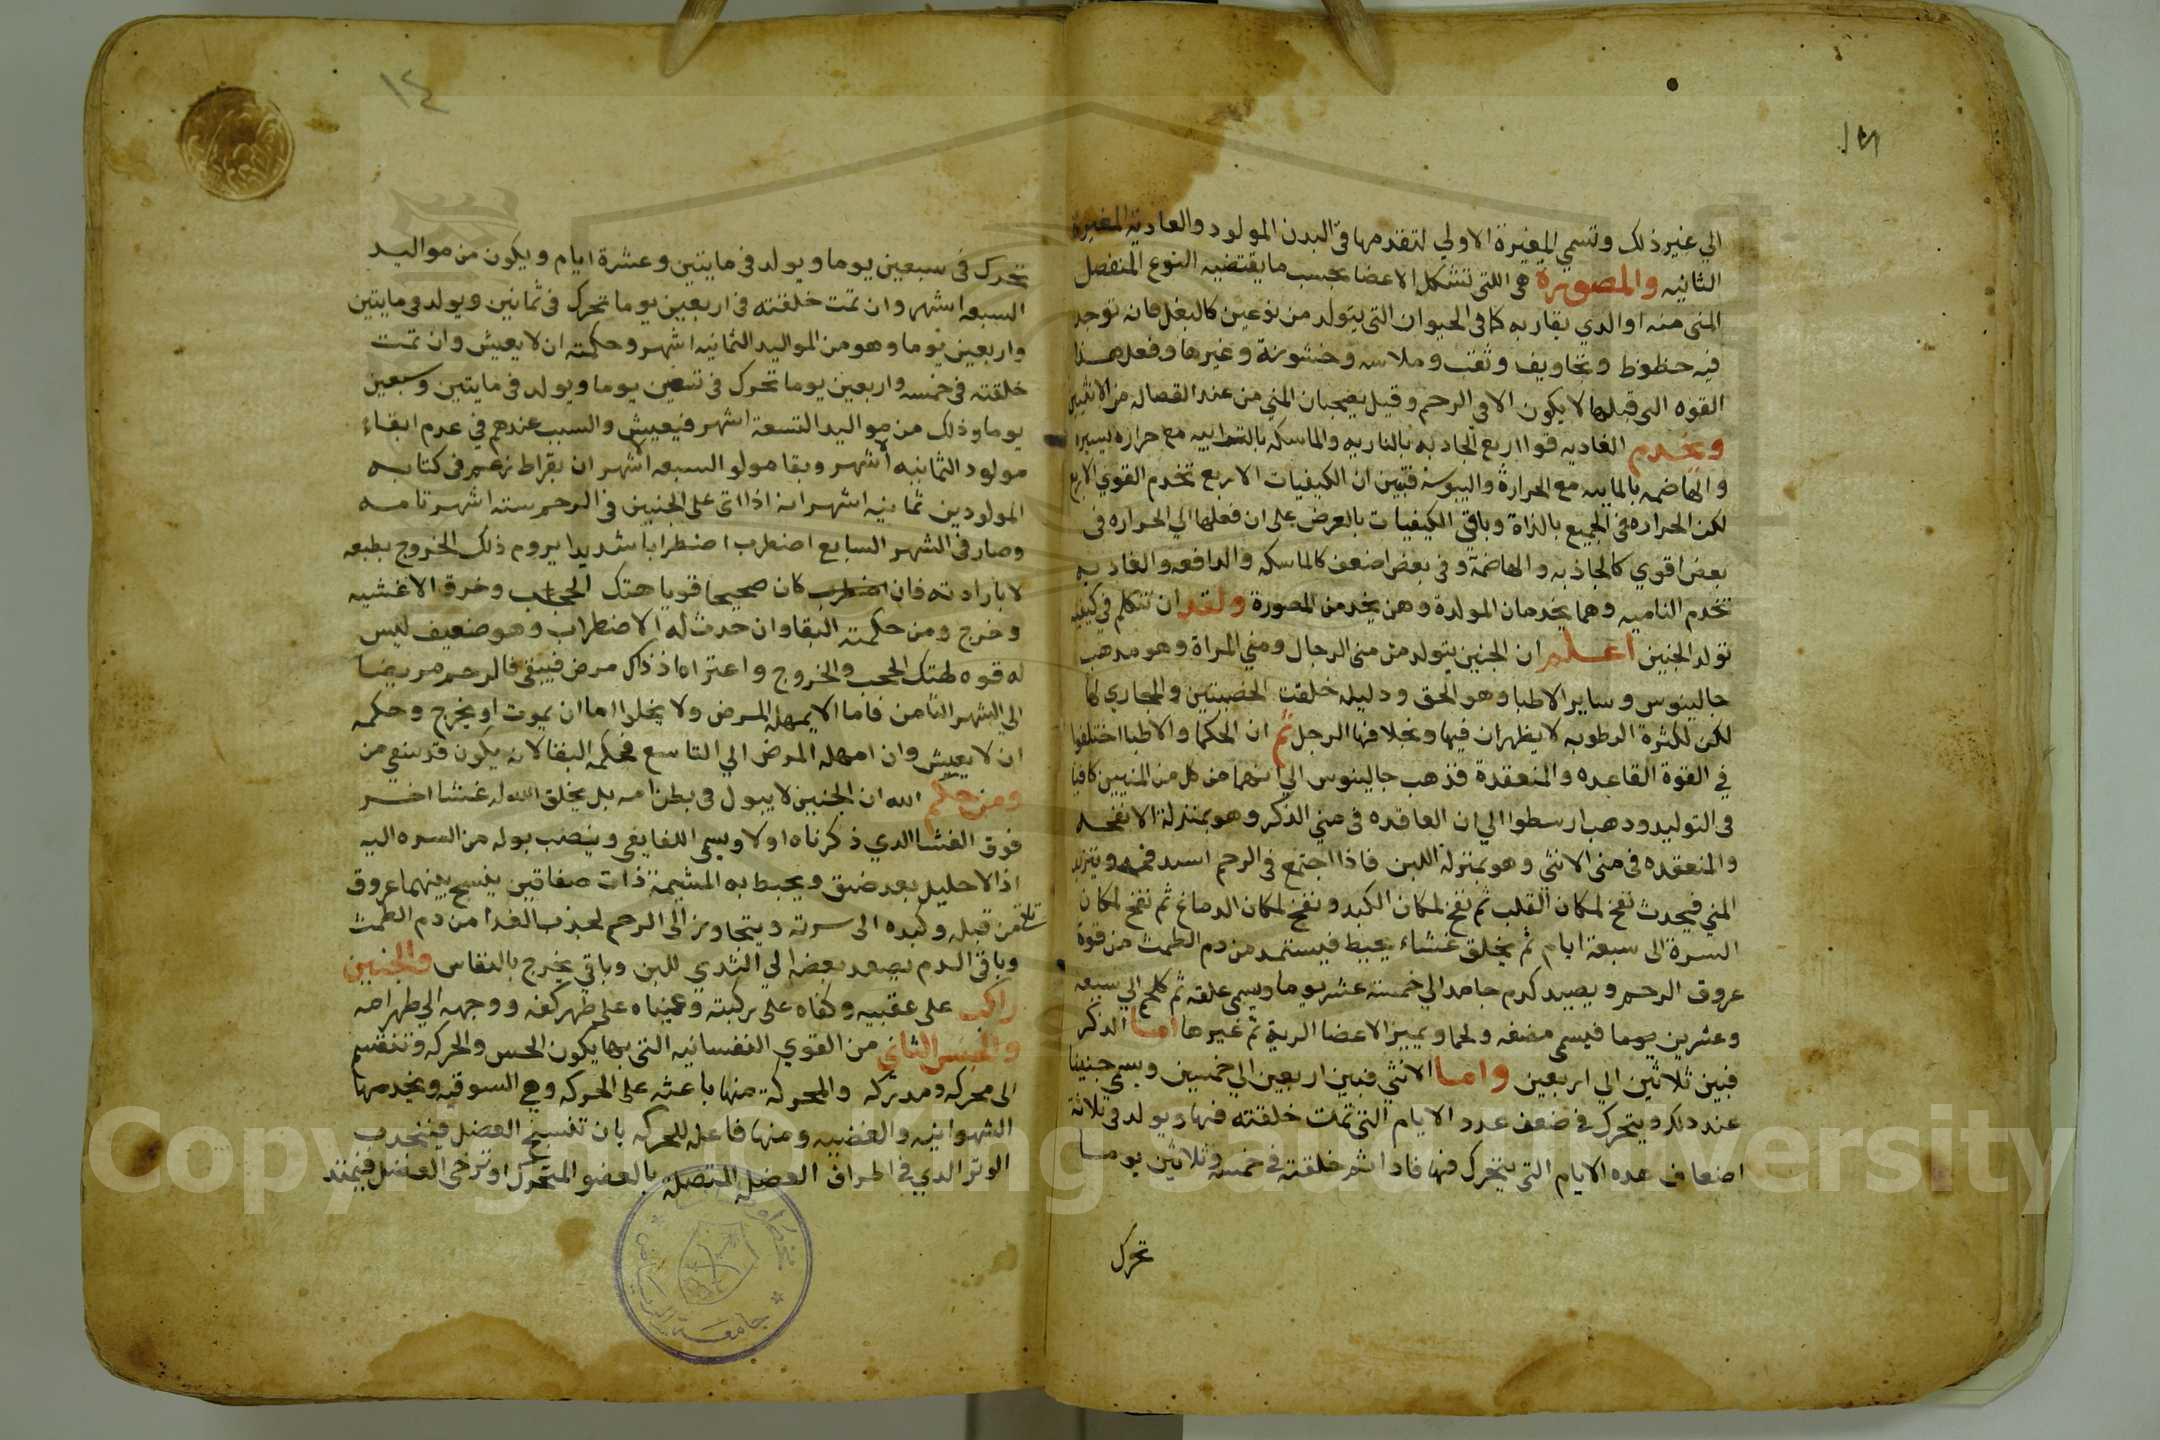 الي غير ذلك وتسمي المغيرة الاولي لتقدمها في البدن المولود والغادية المغيرة
الثانيه والمصورة هي اللتي تشكل الاعضا بحسب ما يقتضيه النوع المنفصل
المني منه او الدي يقاربه كما في الحيوان التي يتولد من نوعين كالبغل فانه توجد
فيه خطوط وتجاويف وثقب وملاسه وخشونة وغيرها وفعل هذا
القوه التي قبلها لا يكون الا في الرحم وقيل يصحبان المني من عند انفصاله من الانثيين
وتخدم الغاديه قوا اربع الجادبه بالناريه والماسكه بالترابيه مع حراره يسيرا
والهاضمه بالماييه مع الحرارة واليبوسه فتبين ان الكيفيات الاربع تخدم القوي الاربع
لكن الحراره في الجميع بالذاة وباقي الكيفيات بالعرض علي ان فعلها الي الحراره في
بعض اقوي كالجاذبه والهاضمة وفي بعض اضعف كالماسكه والدافعه والغاديه
تخدم الناميه وهما يخدمان المولدة وهن يخدمن المصورة ولقد ان نتكلم في كيفيه
تولد الجنين اعلم ان الجنين يتولد من مني الرجال ومني المراة وهو مدهب
جالينوس وساير الاطبا وهو الحق ودليله خلقت الخصيتين والمجاري لها
لكن لكثرة الرطوبه لا يظهران فيها وبخلافها الرجل ثم ان الحكما والاطبا اختلفوا
في القوة القاعده والمنعقدة فذهب جالينوس الي انهما من كل من المنيين كافيا
في التوليد ودهب ارسطوا الي ان العاقده في مني الذكر وهو بمنزلة الانفحه
والمنعقده في مني الانثي وهو بمنزلة اللبن فاذا اجتمع في الرحم انسد فمه ويتزبد
المني فيحدث نفخ لمكان القلب ثم نفخ لمكان الكبد ونفخ لمكان الدماغ ثم نفخ لمكان
السرة الى سبعة ايام ثم يخلق غشاء يحيط فيستمد من دم الطمث من قوة
عروق الرحم ويصير كدم جامد الي خمسة عشر يوما ويسمي علقه ثم كلحم الي سبعه
وعشرين يوما فيسمي مضغه ولحما ويميز الاعضا الرية ثم غيرها اما الدكر
فبين ثلاثين الي اربعين واما الانثي فبين اربعين الي خمسين ويسمي جنينا
عند دلك ويتحرك في ضعف عدد الايام التي تمت خلقته فيها ويولد في ثلاثة
اضعاف هده الايام التي يتحرك فيها فادا تم خلقته في خمسه وثلاثين يوما
تحرك
١٤
تحرك في سبعين يوما ويولد في مايتين وعشرة ايام ويكون من مواليد
السبعه اشهر وان تمت خلقته في اربعين يوما تحرك في ثمانين ويولد في مايتين
واربعين يوما وهو من المواليد الثمانيه اشهر وحكمته ان لا يعيش وان تمت
خلقته في خمسه واربعين يوما تحرك في تسعين يوما ويولد في مايتين وسبعين
يوما وذلك من مواليد التسعة اشهر فيعيش والسبب عندهم في عدم ابقاء
مولود الثمانيه اشهر وبقا مولو السبعه اشهر ان بقراط زعم في كتابه
المولودين ثمانيه اشهر انه اذا اتي على الجنين في الرحم سته اشهر تامه
وصار في الشهر السابع اضطرب اضطرابا شديدا يروم ذلك الخروج بطبعه
لا بارادته فان اضطرب كان صحيحا قويا هتك الحجاب وخرق الاغشيه
وخرج ومن حكمته البقا وان حدث له الاضطراب وهو ضعيف ليس
له قوه لهتك الحجب والخروج واعتراه اذ ذاك مرض فيبقي فالرحم مريضا
الي الشهر الثامن فاما الا يمهله المرض ولا يخلوا اما ان يموت او يخرج وحكمه
ان لا يعيش وان امهله المرض الي التاسع فحكمه البقا لانه يكون قد نقي من
ومن حكم الله ان الجنين لا يبول في بطن امه بل يخلق الله له غشا اخر
فوق الغشا الدي ذكرناه اولا ويسمي اللفايفي وينصب بوله من السره اليه
اذ الاحليل بعد ضيق ويحيط به المشيمة ذات صفاقين ينسج بينهما عروق
من قبله وكبده الى سرته ويتجاوز الى الرحم لجذب الغدا من دم الطمث
وباقي الدم يصعد بعضه الي الثدي للبن وباقي يخرج بالنفاس والجنين
راكب على عقبيه وكفاه على ركبته وعيناه على ظهر كفه ووجهه الي ظهر امه
والجنس الثاني من القوي النفسانيه التي بها يكون الحس والحركه وتنقسم
الى محركه ومدركه والمحركة منها باعثه على الحركه وهي السوقيه ويخدمها
الشهوانيه والغضبيه ومنها فاعله للحركه بان تنسج العضل فينجدب
الوتر الدي في اطراف العضل المتصلة بالعضو المتحرك او ترخي العضل فيمتد
جامعة الرياض
Copyright © King Saud University